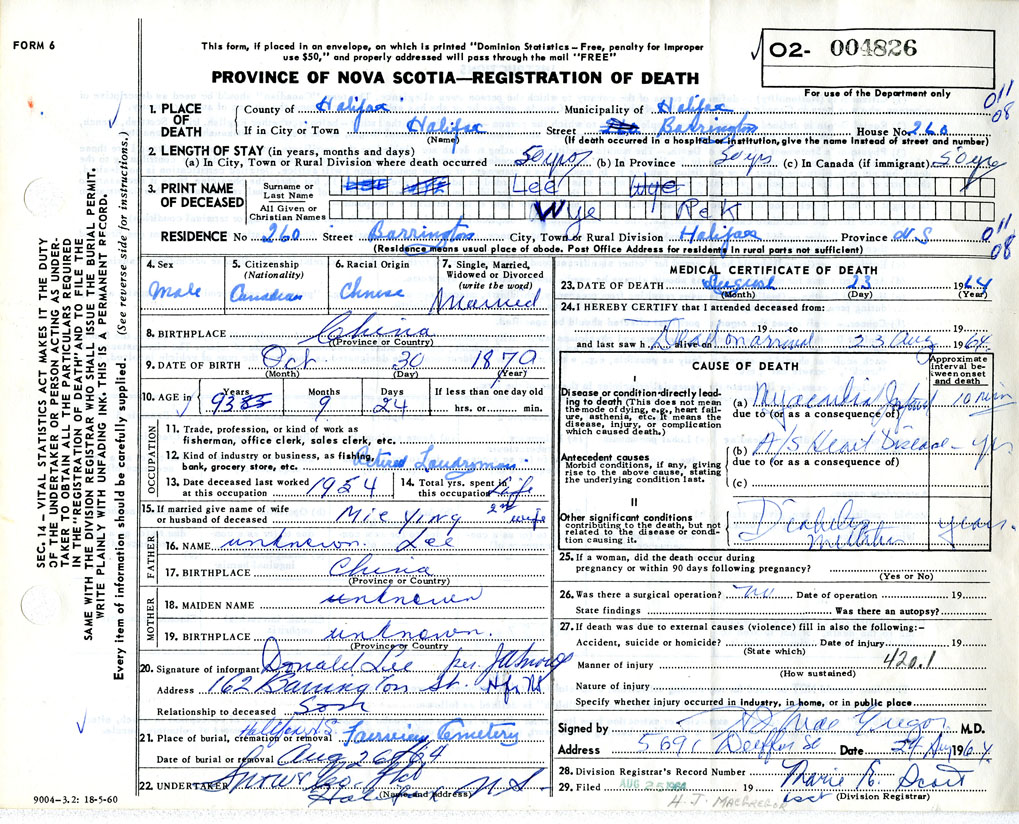 FORM 6
This form, if placed in an envelope, on which is printed "Dominion Statistics – Free, penalty for improper
use $50," and properly addressed will pass through the mail "FREE"
PROVINCE OF NOVA SCOTIA—REGISTRATION OF DEATH
02- 004826
For use of the Department only
011
08
1. PLACE OF DEATH
County of Halifax Municipality of Halifax
If in City or Town Halifax Street Barrington House No. 260
(Name) (If death occurred in a hospital or institution, give the name instead of street and number)
2. LENGTH OF STAY (in years, months and days)
(a) In City, Town or Rural Division where death occurred 50 yrs (b) In Province 50 yrs (c) In Canada (if immigrant) 50 yrs
3. PRINT NAME OF DECEASED
Surname or Last Name Lee Wye
All Given or Christian Names Wye Rek
RESIDENCE No 260 Street Barrington City, Town or Rural Division Halifax Province N.S
(Residence means usual place of abode. Post Office Address for residents in rural parts not sufficient)
011
08
4. Sex
Male
5. Citizenship
(Nationality)
Canadian
6. Racial Origin
Chinese
7. Single, Married, Widowed or Divorced
(write the word)
Married
8. BIRTHPLACE China
(Province or Country)
9. DATE OF BIRTH Oct 30 1870
(Month) (Day) (Year)
10. AGE in Years Months Days If less than one day old
93 9 24 hrs. or min.
OCCUPATION
11. Trade, profession, or kind of work as
fisherman, office clerk, sales clerk, etc.
12. Kind of industry or business, as fishing,
bank, grocery store, etc. retired Laundryman
13. Date deceased last worked
at this occupation 1954
14. Total yrs. spent in
this occupation Life
15. If married give name of wife
or husband of deceased Mie Ying 2nd wife
FATHER
16. NAME unknown Lee
17. BIRTHPLACE China
(Province or Country)
MOTHER
18. MAIDEN NAME unknown
19. BIRTHPLACE unknown.
(Province or Country
20. Signature of informant Donald Lee per
Address 162 Barrington St. Hfx NS
Relationship to deceased Son
21. Place of burial, cremation or removal Halifax N.S. Fairview Cemetery
Date of burial or removal Aug 26/64
22. UNDERTAKER Snow Co Ltd
Halifax N.S.
(Name and Address)
9004-3.2: 18-5-60
MEDICAL CERTIFICATE OF DEATH
23. DATE OF DEATH August 23 1964
(Month) (Day) (Year)
24. I HEREBY CERTIFY that I attended deceased from:
19 to 19
and last saw h alive on Dead on arrival 23 Aug 1964
CAUSE OF DEATH
Approximate interval between onset and death
I
Disease or condition directly leading to death (This does not mean the mode of dying, e.g., heart failure, asthenia, etc. It means the disease, injury, or complication which caused death.)
(a) Myocardial Infarct 10 min
due to (or as a consequence of)
Antecedent causes
Morbid conditions, if any, giving rise to the above cause, stating the underlying condition last.
(b) A/S Heart Disease – yrs
due to (or as a consequence of)
(c)
II
Other significant conditions
contributing to the death, but not related to the disease or condition causing it.
Diabetes Mellitus years.
25. If a woman, did the death occur during
pregnancy or within 90 days following pregnancy?
(Yes or No)
26. Was there a surgical operation? no Date of operation 19
State findings Was there an autopsy?
27. If death was due to external causes (violence) fill in also the following:-
Accident, suicide or homicide? Date of injury 19
(State which)
Manner of injury 420.1
(How sustained)
Nature of injury
Specify whether injury occurred in industry, in home, or in public place
Signed by MacGregor M.D.
Address 5691 Date 24 Aug 1964
28. Division Registrar's Record Number
29. Filed AUG 25 1964 19 Marie E. Scott
(Division Registrar)
H. J. MACGREGOR
SEC. 14 – VITAL STATISTICS ACT MAKES IT THE DUTY
OF THE UNDERTAKER OR PERSON ACTING AS UNDER-
TAKER TO OBTAIN ALL THE PARTICULARS REQUIRED
IN THE "REGISTRATION OF DEATH" AND TO FILE THE
SAME WITH THE DIVISION REGISTRAR WHO SHALL ISSUE THE BURIAL PERMIT.
WRITE PLAINLY WITH UNFADING INK. THIS IS A PERMANENT RECORD.
Every item of information should be carefully supplied. (See reverse side for instructions.)